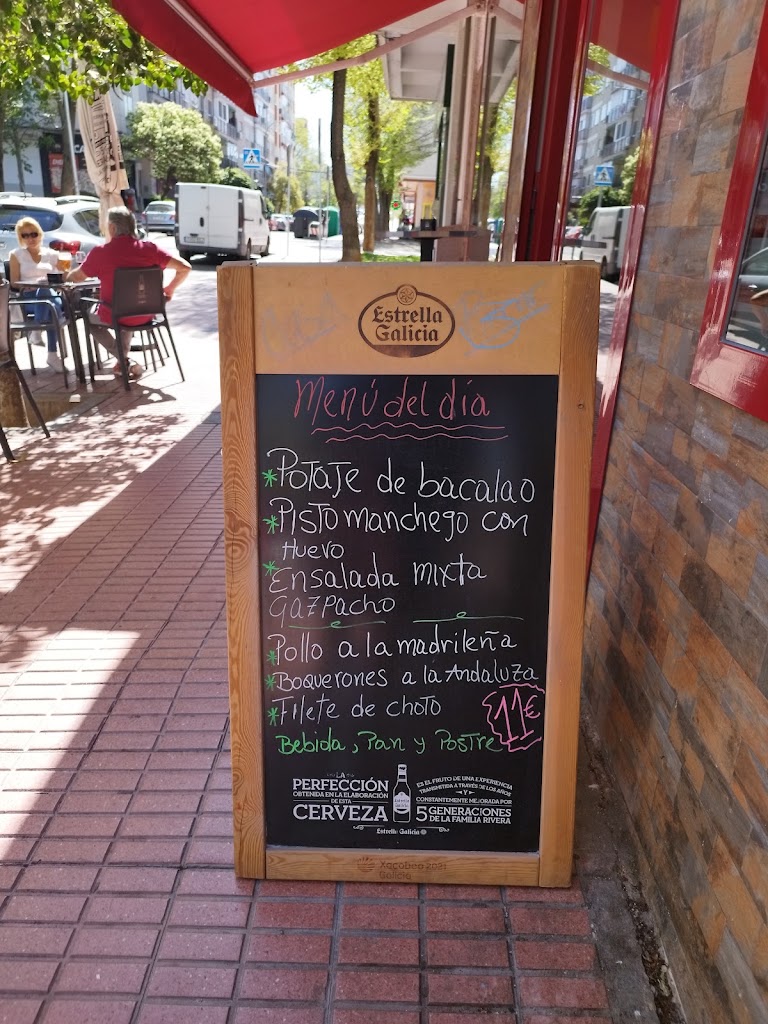 Estrella
Galicia
Menú del día
* Potaje de bacalao
* Pisto manchego con
Huevo
* Ensalada mixta
Gazpacho
* Pollo a la madrileña
* Boquerones a la Andaluza
* Filete de choto
11€
Bebida, Pan y Postre
LA
PERFECCIÓN
OBTENIDA EN LA ELABORACIÓN
DE ESTA
CERVEZA
ES EL FRUTO DE UNA EXPERIENCIA
TRANSMITIDA A TRAVÉS DE LOS AÑOS
Y
CONSTANTEMENTE MEJORADA POR
5 GENERACIONES
DE LA FAMILIA RIVERA
Estrella Galicia
Xacobeo 2021
Galicia